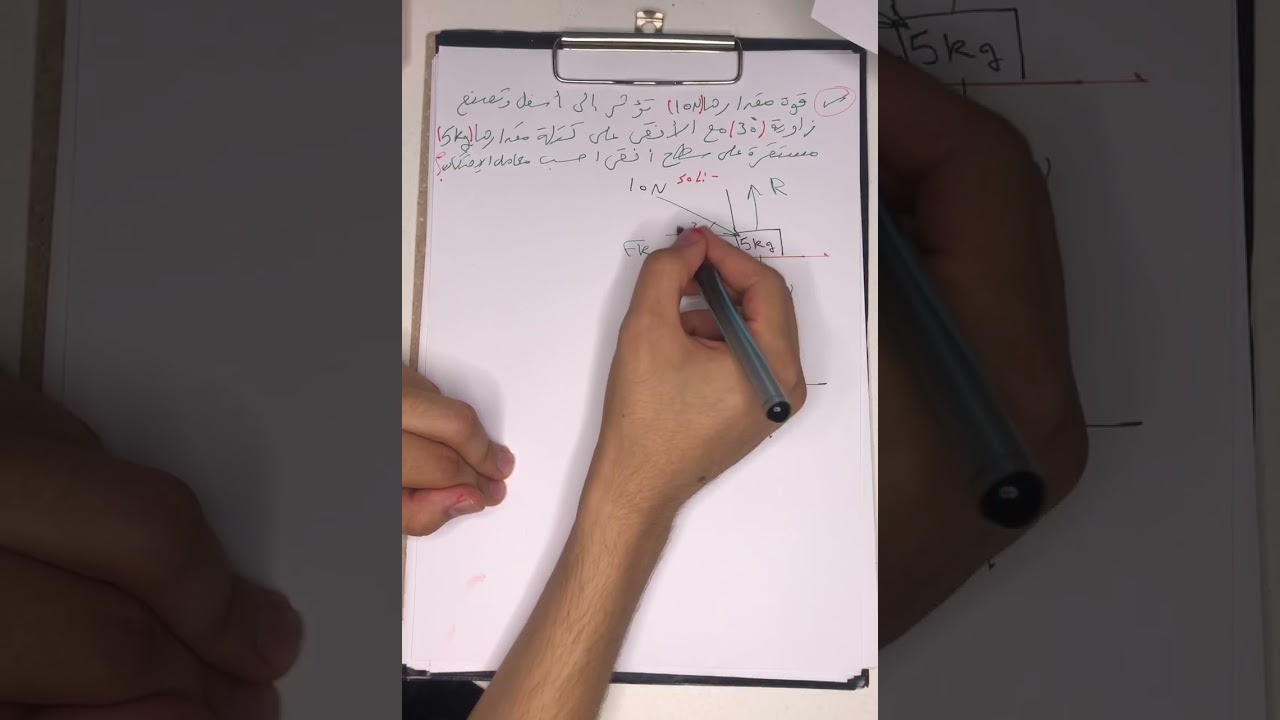 س/ قوة مقدارها (10N) تؤثر الى أسفل وتصنع
زاوية (30°) مع الأفقي على كتلة مقدارها (5kg)
مستقرة على سطح أفقي احسب معامل الاحتكاك؟
10N Sol:- R
Fk 5kg
5kg